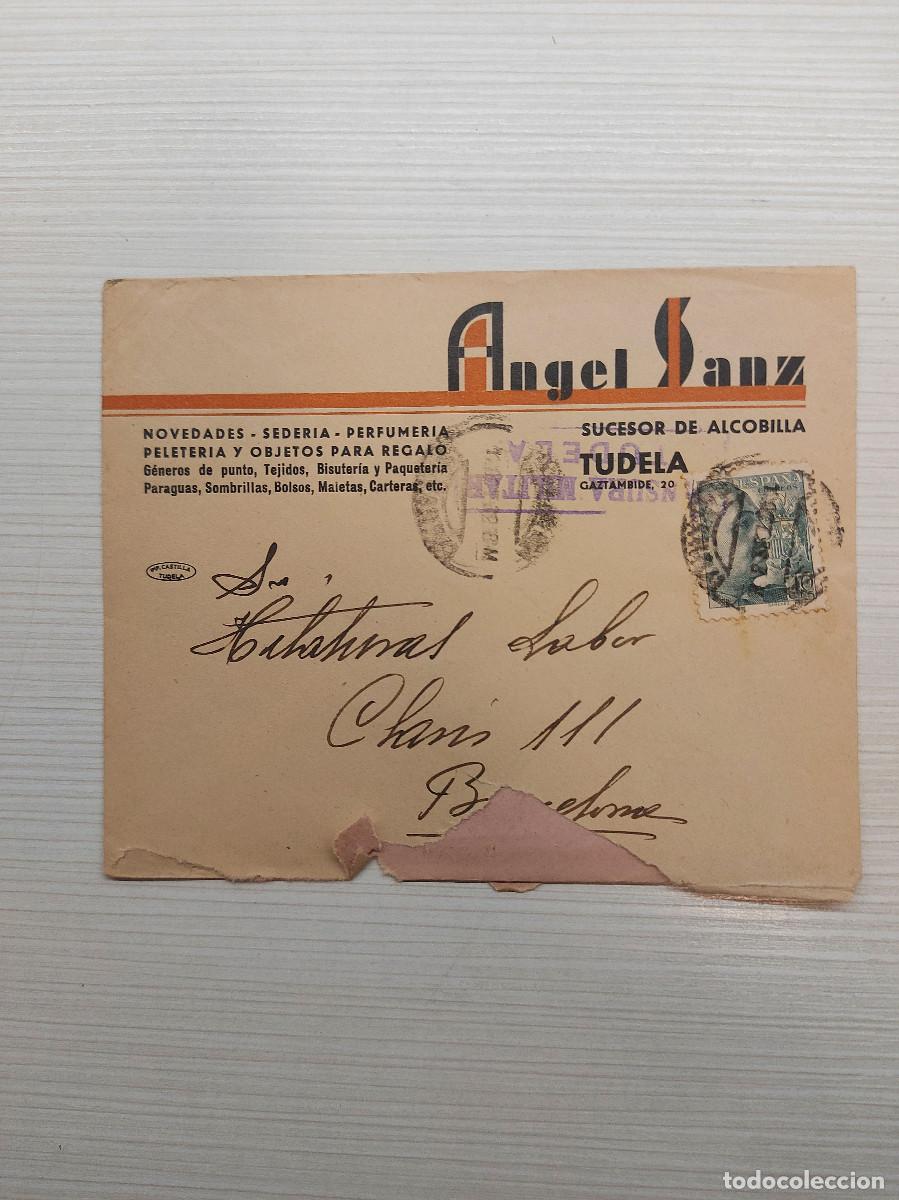 Angel Sanz
NOVEDADES - SEDERIA - PERFUMERIA
PELETERIA Y OBJETOS PARA REGALO
Géneros de punto, Tejidos, Bisutería y Paquetería
Paraguas, Sombrillas, Bolsos, Maletas, Carteras, etc.
SUCESOR DE ALCOBILLA
TUDELA
GAZTAMBIDE, 20
NSURA MILITAR
UDELA
ESPAÑA
IMP. CASTILLA
TUDELA
Hilaturas Labor
Claris 111
Barcelona
todocoleccion